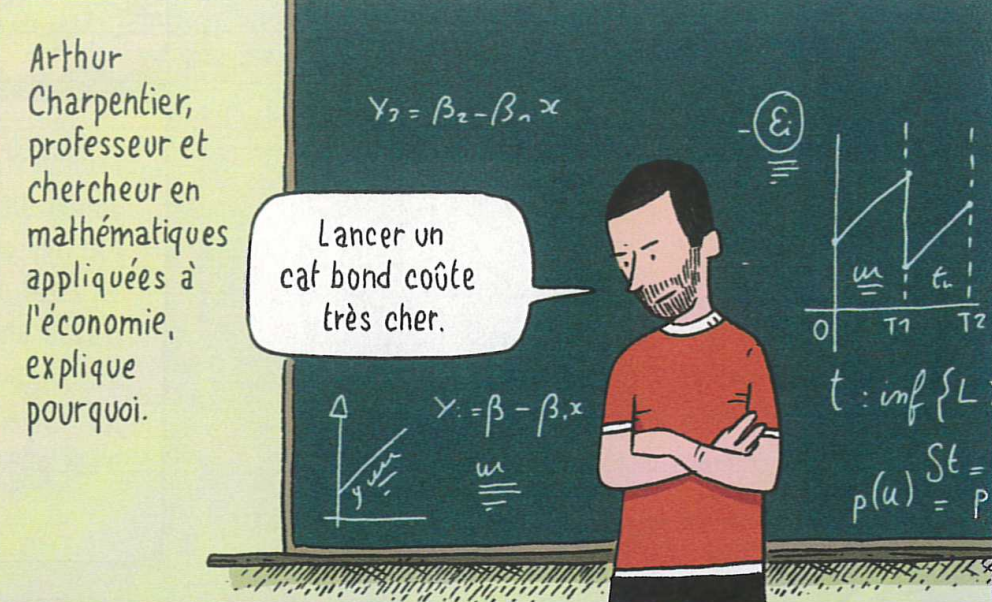 Arthur
Charpentier,
professeur et
chercheur en
mathématiques
appliquées à
l'économie,
explique
pourquoi.
Lancer un
cat bond coûte
très cher.
Y₃ = β₂-βₙx
-Ɛi
0
T1
T2
y
Y: =β - β,x
t : inf {L
St =
p(u) = p